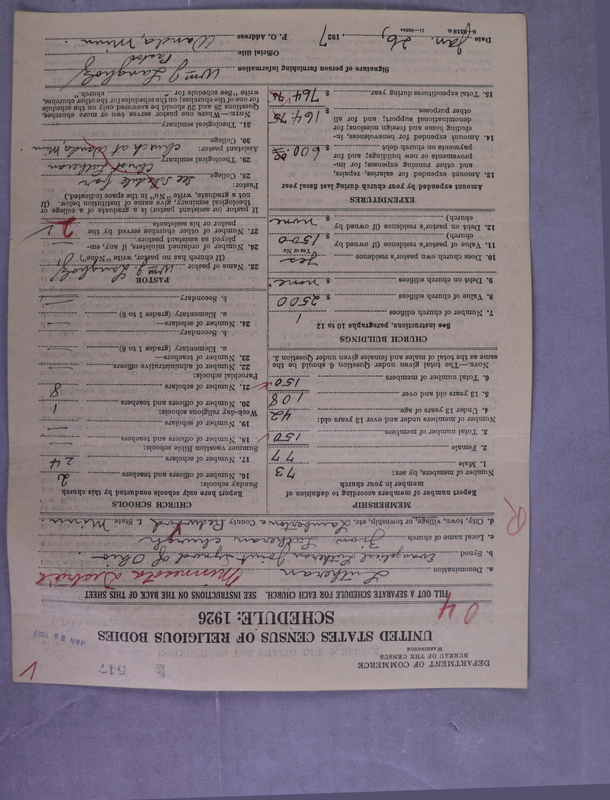 547
DEPARTMENT OF COMMERCE
BUREAU OF THE CENSUS
WASHINGTON
UNITED STATES CENSUS OF RELIGIOUS BODIES
JAN 28 1927
SCHEDULE: 1926
04
FILL OUT A SEPARATE SCHEDULE FOR EACH CHURCH. SEE INSTRUCTIONS ON THE BACK OF THIS SHEET
a. Denomination Lutheran Minnesota District
b. Synod Evangelical Lutheran Joint Synod of Ohio
c. Local name of church Zion Lutheran church
R
d. City, town, village, or township, etc. Lamberton e. County Redwood f. State Minn
MEMBERSHIP
Report number of members according to definition of
member in your church
Number of members, by sex:
1. Male 73
2. Female 77
3. Total number of members 150
Number of members under and over 13 years old:
4. Under 13 years of age 42
5. 13 years old and over 108
6. Total number of members 150
NOTE.—The total given under Question 6 should be the
same as the total of males and females given under Question 3.
CHURCH BUILDINGS
See instructions, paragraphs 10 to 12
7. Number of church edifices 1
8. Value of church edifices $ 2500
9. Debt on church edifices $ none
10. Does church own pastor's residence yes
(Yes or No)
11. Value of pastor's residence (if owned by
church) $ 1500
12. Debt on pastor's residence (if owned by
church) $ none
EXPENDITURES
Amount expended by your church during last fiscal year
13. Amount expended for salaries, repairs,
and other running expenses; for im-
provements or new buildings; and for
payments on church debt $ 600.00
14. Amount expended for benevolences, in-
cluding home and foreign missions; for
denominational support; and for all
other purposes $ 164.75
15. Total expenditures during year $ 764.75
CHURCH SCHOOLS
Report here only schools conducted by this church
Sunday schools:
16. Number of officers and teachers 2
17. Number of scholars 24
Summer vacation Bible schools:
18. Number of officers and teachers —
19. Number of scholars —
Week-day religious schools:
20. Number of officers and teachers 1
21. Number of scholars 8
Parochial schools:
22. Number of administrative officers —
23. Number of teachers—
a. Elementary (grades 1 to 8) —
b. Secondary —
24. Number of scholars—
a. Elementary (grades 1 to 8) —
b. Secondary —
PASTOR
25. Name of pastor Wm J Langholz
(If church has no pastor, write "None")
26. Number of ordained ministers, if any, em-
ployed as assistant pastors 0
27. Number of other churches served by the
pastor or his assistants 2
If pastor (or assistant pastor) is a graduate of a college or
theological seminary, give name of institution below. (If
not a graduate, write "No" in the space indicated.)
Pastor: see schedule for
28. College Christ Lutheran
29. Theological seminary church at Wanda Minn
Assistant pastor:
30. College
31. Theological seminary
NOTE.—Where one pastor serves two or more churches,
Questions 28 and 29 should be answered only on the schedule
for one of the churches; on the schedules for the other churches,
write "See Schedule for church."
Signature of person furnishing information Wm J Langholz
Official title Pastor
Date Jan. 26, 1927 P. O. Address Wanda, Minn.